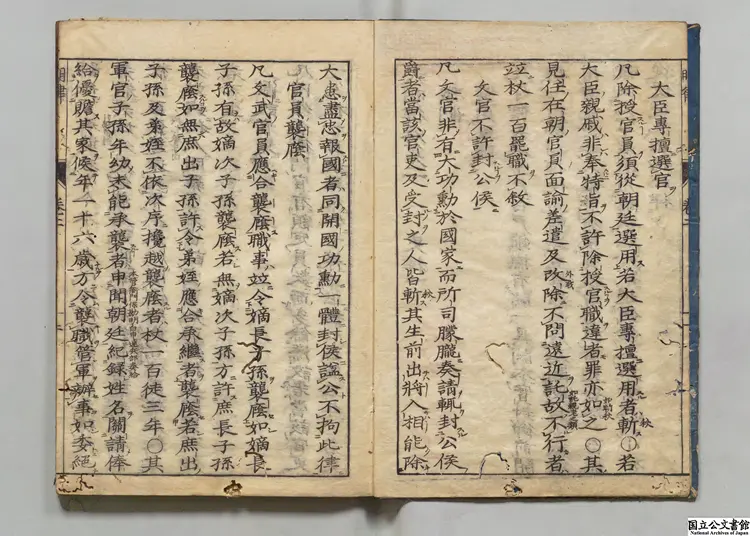 大臣專擅選官
凡除授官員須從朝廷選用若大臣專擅選用者斬○若
大臣親戚非奉特旨不許除授官職違者罪亦如之○其
見任在朝官員面諭差遣及改除不問遠近託故不行者
並杖一百罷職不敘
文官不許封公侯
凡文官非有大功勳於國家而所司朦朧奏請輒封公侯
爵者當該官吏及受封之人皆斬其生前出將入相能除
大患盡忠報國者同開國功勳一體封侯謚公不拘此律
官員襲廕
凡文武官員應合襲廕職事竝令嫡長子孫襲廕如嫡長
子孫有故嫡次子孫襲廕若無嫡次子孫方許庶長子孫
襲廕如無庶出子孫許令弟姪應合承繼者襲廕若庶出
子孫及弟姪不依次序攙越襲廕者杖一百徒三年○其
軍官子孫年幼未能承襲者申聞朝廷紀録姓名關請俸
給優贍其家候年一十六歳方令襲職管軍辦事如委絕
明律
卷二
国立公文書館
National Archives of Japan